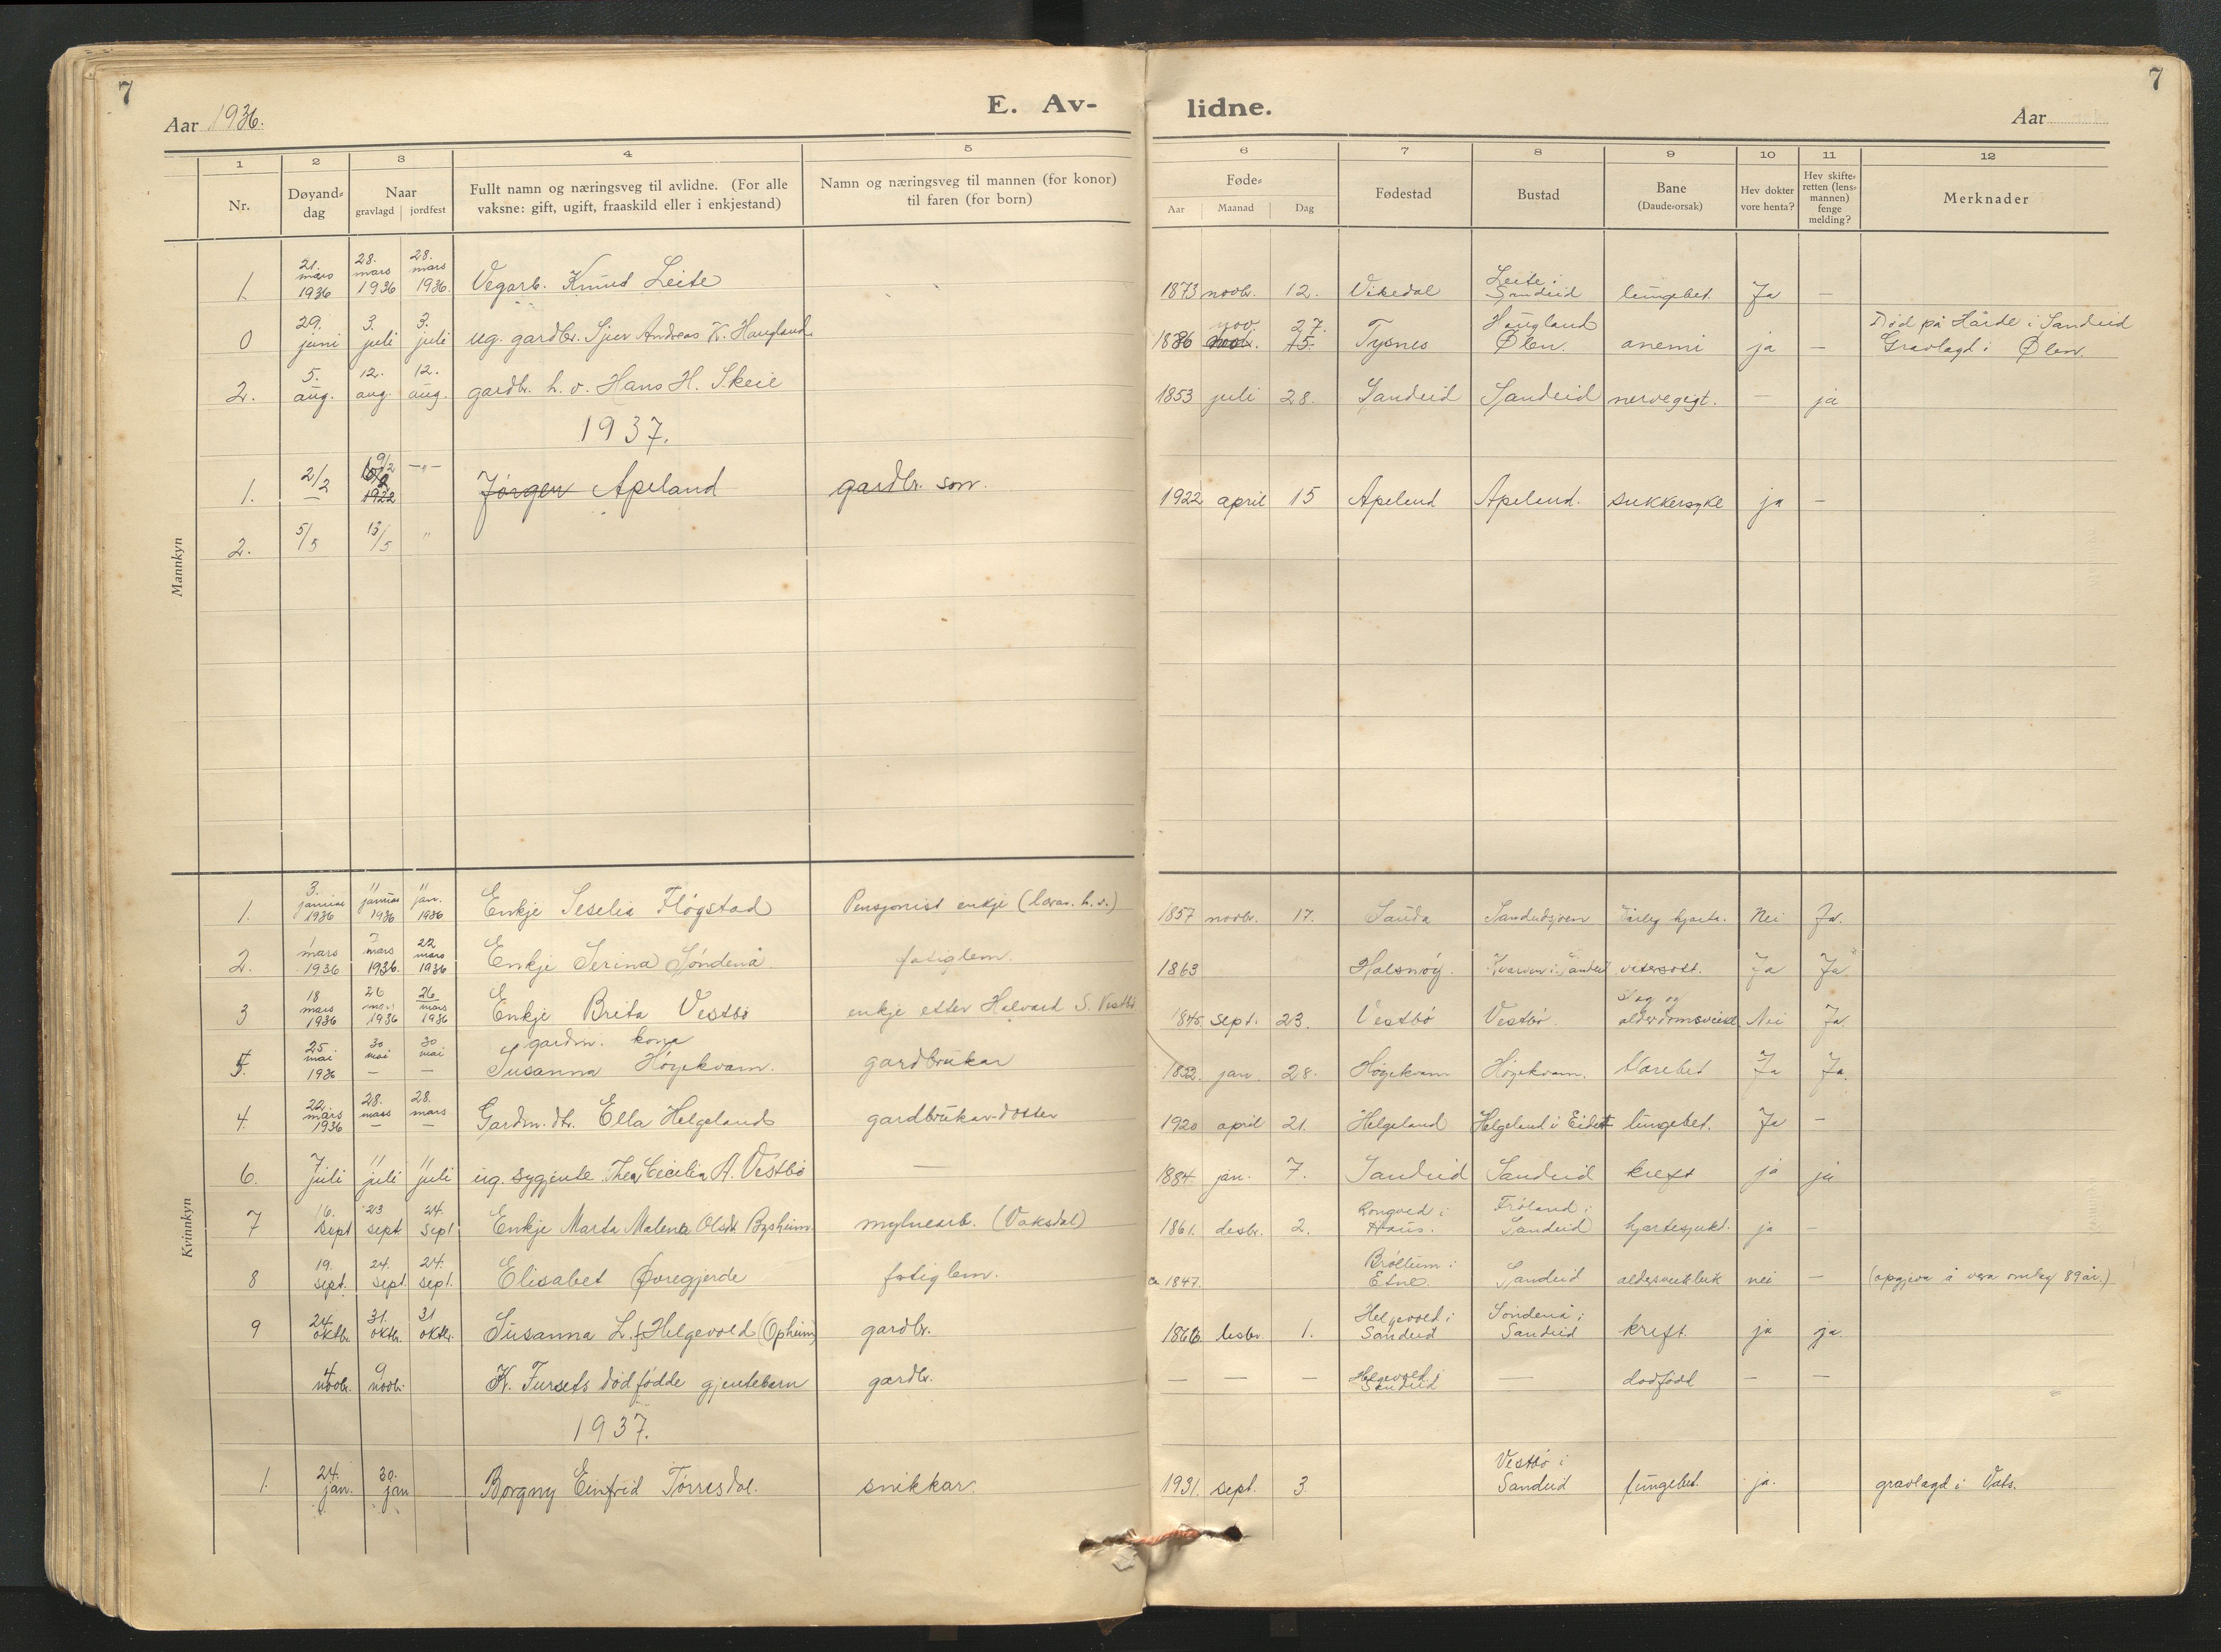 7
7
Aar 1936.
E. Av-
lidne.
Aar
1 2 3 4 5 6 7 8 9 10 11 12
Nr.
Døyand-
dag
Naar
gravlagd | jordfest
Fullt namn og næringsveg til avlidne. (For alle
vaksne: gift, ugift, fraaskild eller i enkjestand)
Namn og næringsveg til mannen (for konor)
til faren (for born)
Føde-
Aar Maanad Dag
Fødestad
Bustad
Bane
(Daude-orsak)
Hev dokter
vore henta?
Hev skifte-
retten (lens-
mannen)
fenge
melding?
Merknader
Mannkyn
1. 21. mars 1936 28. mars 1936 28. mars 1936. Vegarb. Knut Leite 1873 novbr. 12. Vikedal Leite i Sandeid lungebet. Ja —
0 29. juni 3. juli 3. juli ug. gardbr. Sjur Andreas K. Haugland 1886 nov. 27. Tysnes Haugland Ølen. anemi ja — Død på Hårde i Sandeid
Gravlagd i Ølen.
2. 5. aug. 12. aug. 12. aug. gardbr. h. v. Hans H. Skeie 1853 juli 28. Sandeid Sandeid nervegigt. — ja
1937.
1. 2/2 — 9/2 1922 —"— Jørgen Apeland gardbr. son. 1922 april 15 Apelend Apelend. sukkersyke ja —
2. 5/5 13/5 "
Kvinnkyn
1. 3. januar 1936 11 januar 1936 11 jan. 1936 Enkje Seselia Fløgstad Pensjonist enkje (lærar. h. v.) 1857 novbr. 17. Sauda Sandeidsjøen Dårleg hjarte. Nei Ja.
2. 1 mars 1936 7 mars 1936. 22 mars 1936 Enkje Serina Søndenå fatiglem. 1863 Halsnøy. Kvarven i Sandeid vatersott. Ja Ja
3 18 mars 1936 26 mars 1936 26 mars 1936 Enkje Brita Vestbø enkje etter Halvard S. Vestbø 1845. sept. 23. Vestbø Vestbø. Slag og alderdomsveikl. Nei Ja.
5. 25. mai 1936 30 mai — 30 mai — gardm. kona Susanna Høyekvam. gardbrukar 1852. jan. 28. Høyekvam Høyekvam. blærebet Ja Ja.
4. 22. mars 1936 28. mars — 28. mars — Gardm. dtr. Ella Helgeland gardbrukar-dotter 1920 april 21. Helgeland Helgeland i Eidet lungebet. Ja —
6. 7 juli 11 juli 11 juli ug. sygjente Thea Cecilia A. Vestbø — 1884 jan. 7. Sandeid Sandeid kreft ja ja
7 16. sept 23 sept. 24. sept Enkje Marta Malena Olsdt. Bysheim. mylnearb. (Vaksdal) 1861. desbr. 2. Rongved i Haus. Frøland i Sandeid hjartesjukt. ja —
8 19. sept. 24. sept 24. sept. Elisabet Øvregjerde fatiglem. ca 1847. Etne. Sandeid nei — (opgjeve å vera omlag 89 år.)
9 24. oktbr. 31. oktbr. 31 oktbr. Susanna L. Helgevold (Opheim) gardbr. 1866. desbr. 1. Helgevold i Sandeid Søndenå i Sandeid kreft. ja ja.
4 novbr. 9 novbr. K. Fursets død fødde gjentebarn gardbr. — — — Helgevold i Sandeid — dødfødd — —
1937.
1. 24. jan. 30. jan Borgny Einfrid Tørresdal. snikkar. 1931. sept. 3. Vestbø i Sandeid lungebet. ja. gravlagd i Vats.